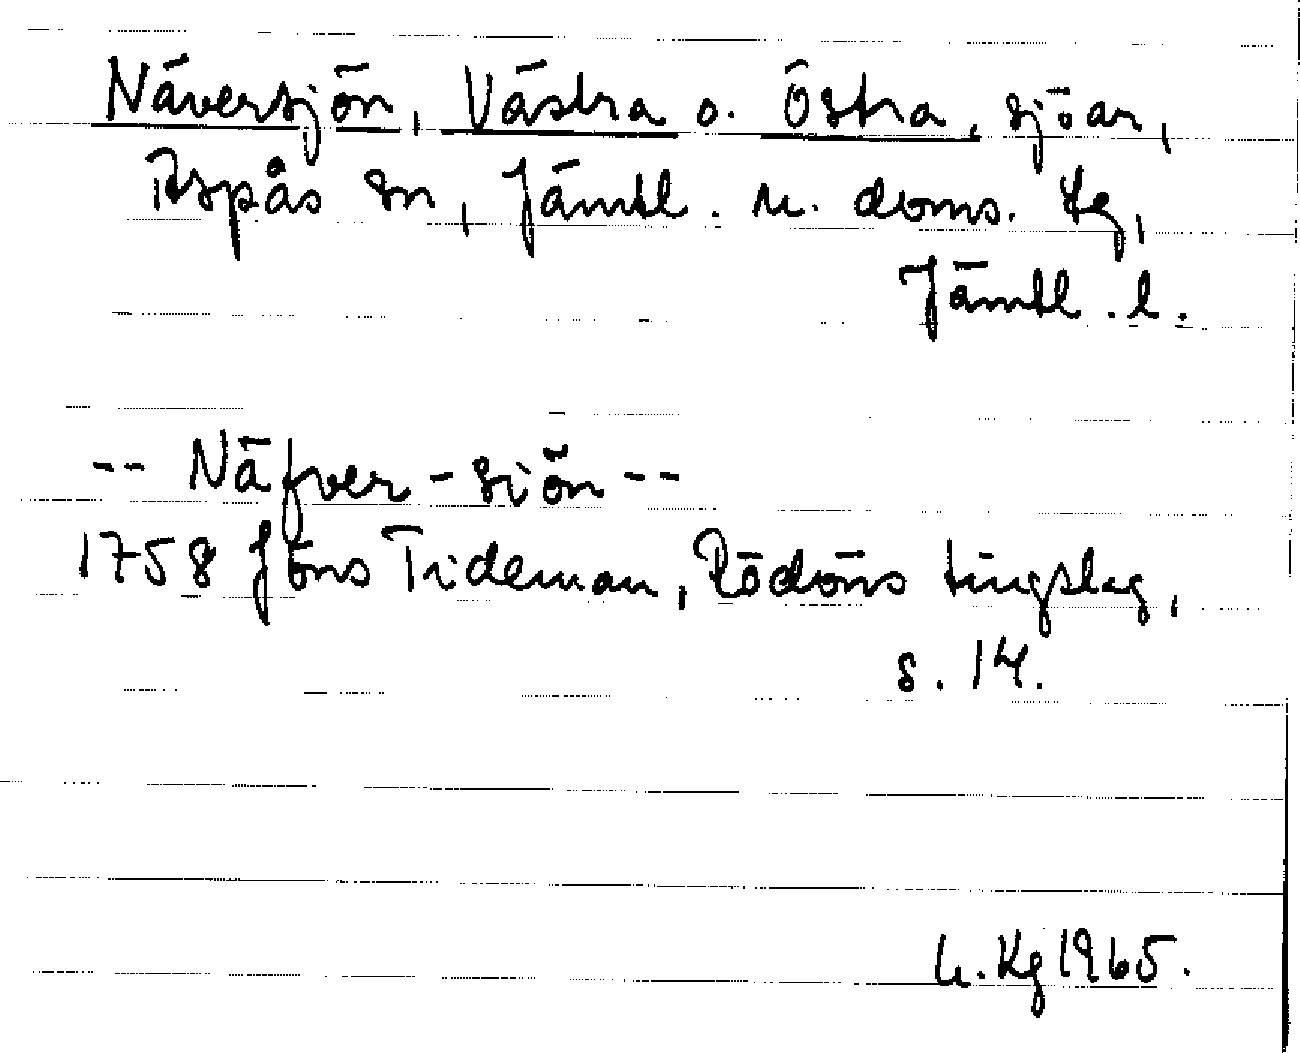 Näversjön, Västra o. Östra, sjöar,
Aspås sn, Jämtl. n. doms. tg,
Jämtl. l.
-- Näfver-siön --
1758 Jöns Tideman, Rödöns tingslag,
s. 14.
G. Kg 1965.